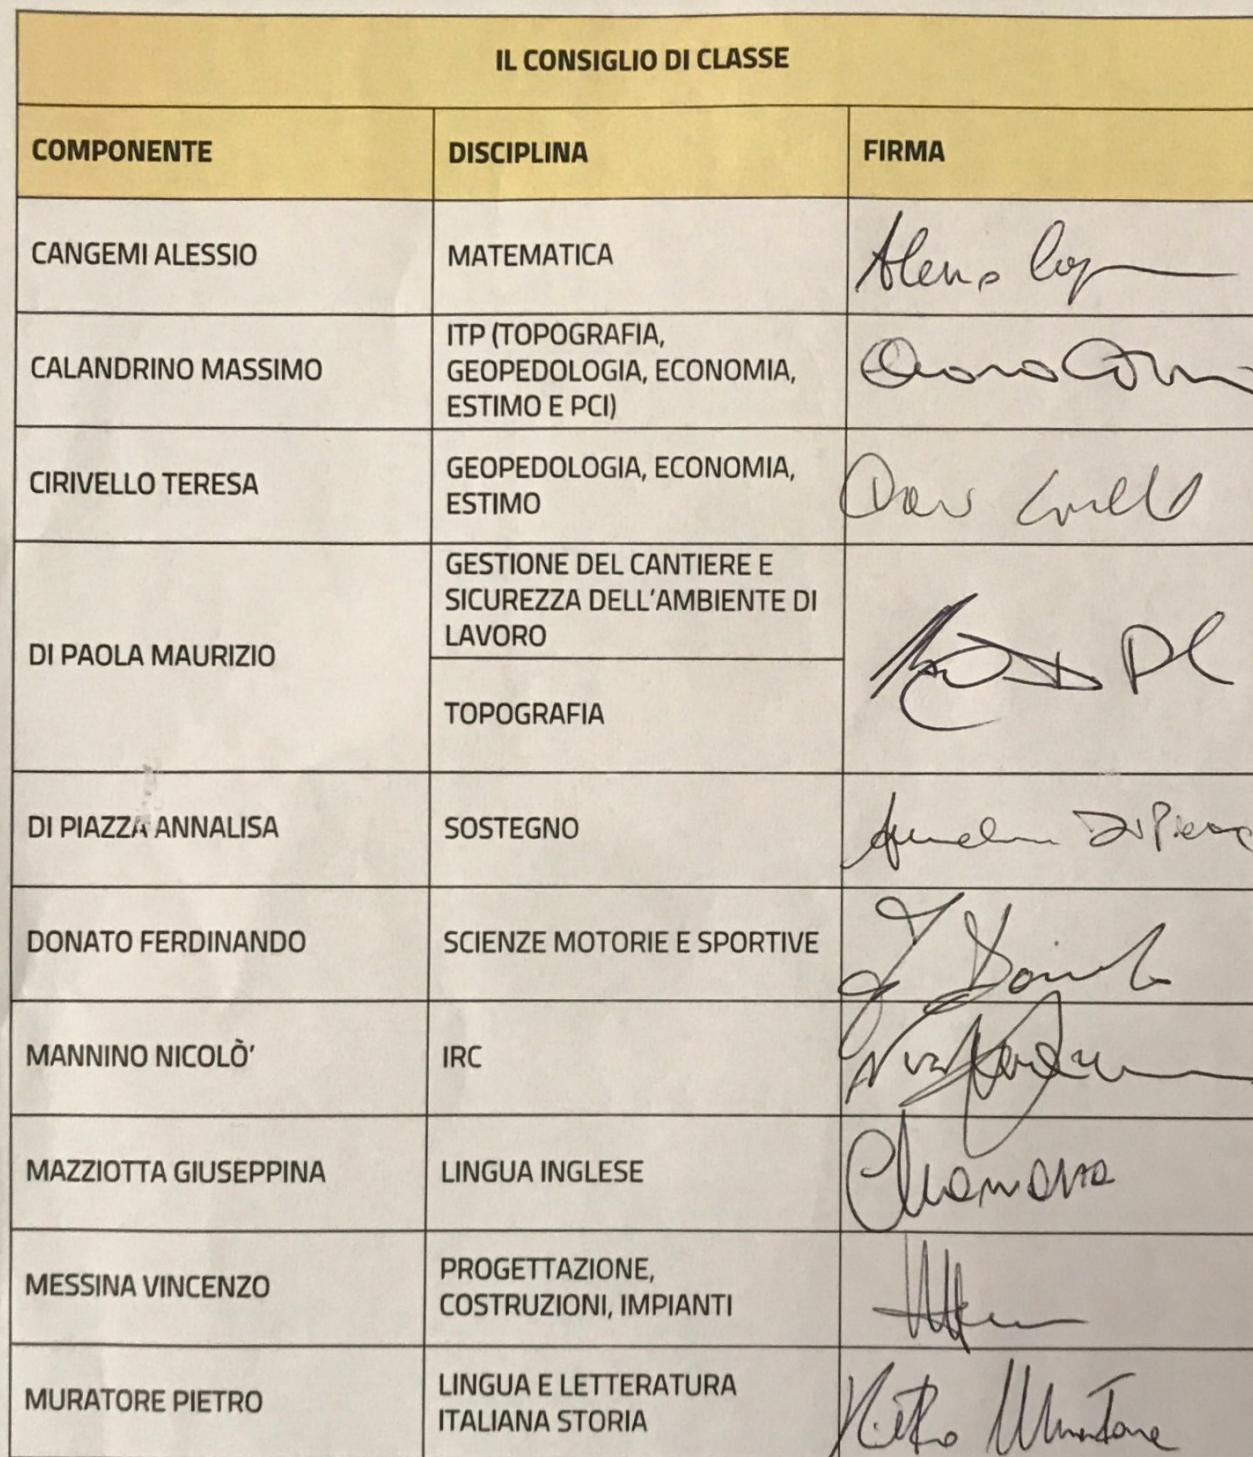 IL CONSIGLIO DI CLASSE
COMPONENTE DISCIPLINA FIRMA
CANGEMI ALESSIO MATEMATICA
CALANDRINO MASSIMO
ITP (TOPOGRAFIA,
GEOPEDOLOGIA, ECONOMIA,
ESTIMO E PCI)
CIRIVELLO TERESA
GEOPEDOLOGIA, ECONOMIA,
ESTIMO
DI PAOLA MAURIZIO
GESTIONE DEL CANTIERE E
SICUREZZA DELL'AMBIENTE DI
LAVORO
TOPOGRAFIA
DI PIAZZA ANNALISA SOSTEGNO
DONATO FERDINANDO SCIENZE MOTORIE E SPORTIVE
MANNINO NICOLÒ' IRC
MAZZIOTTA GIUSEPPINA LINGUA INGLESE
MESSINA VINCENZO
PROGETTAZIONE,
COSTRUZIONI, IMPIANTI
MURATORE PIETRO
LINGUA E LETTERATURA
ITALIANA STORIA
Pietro Muratore